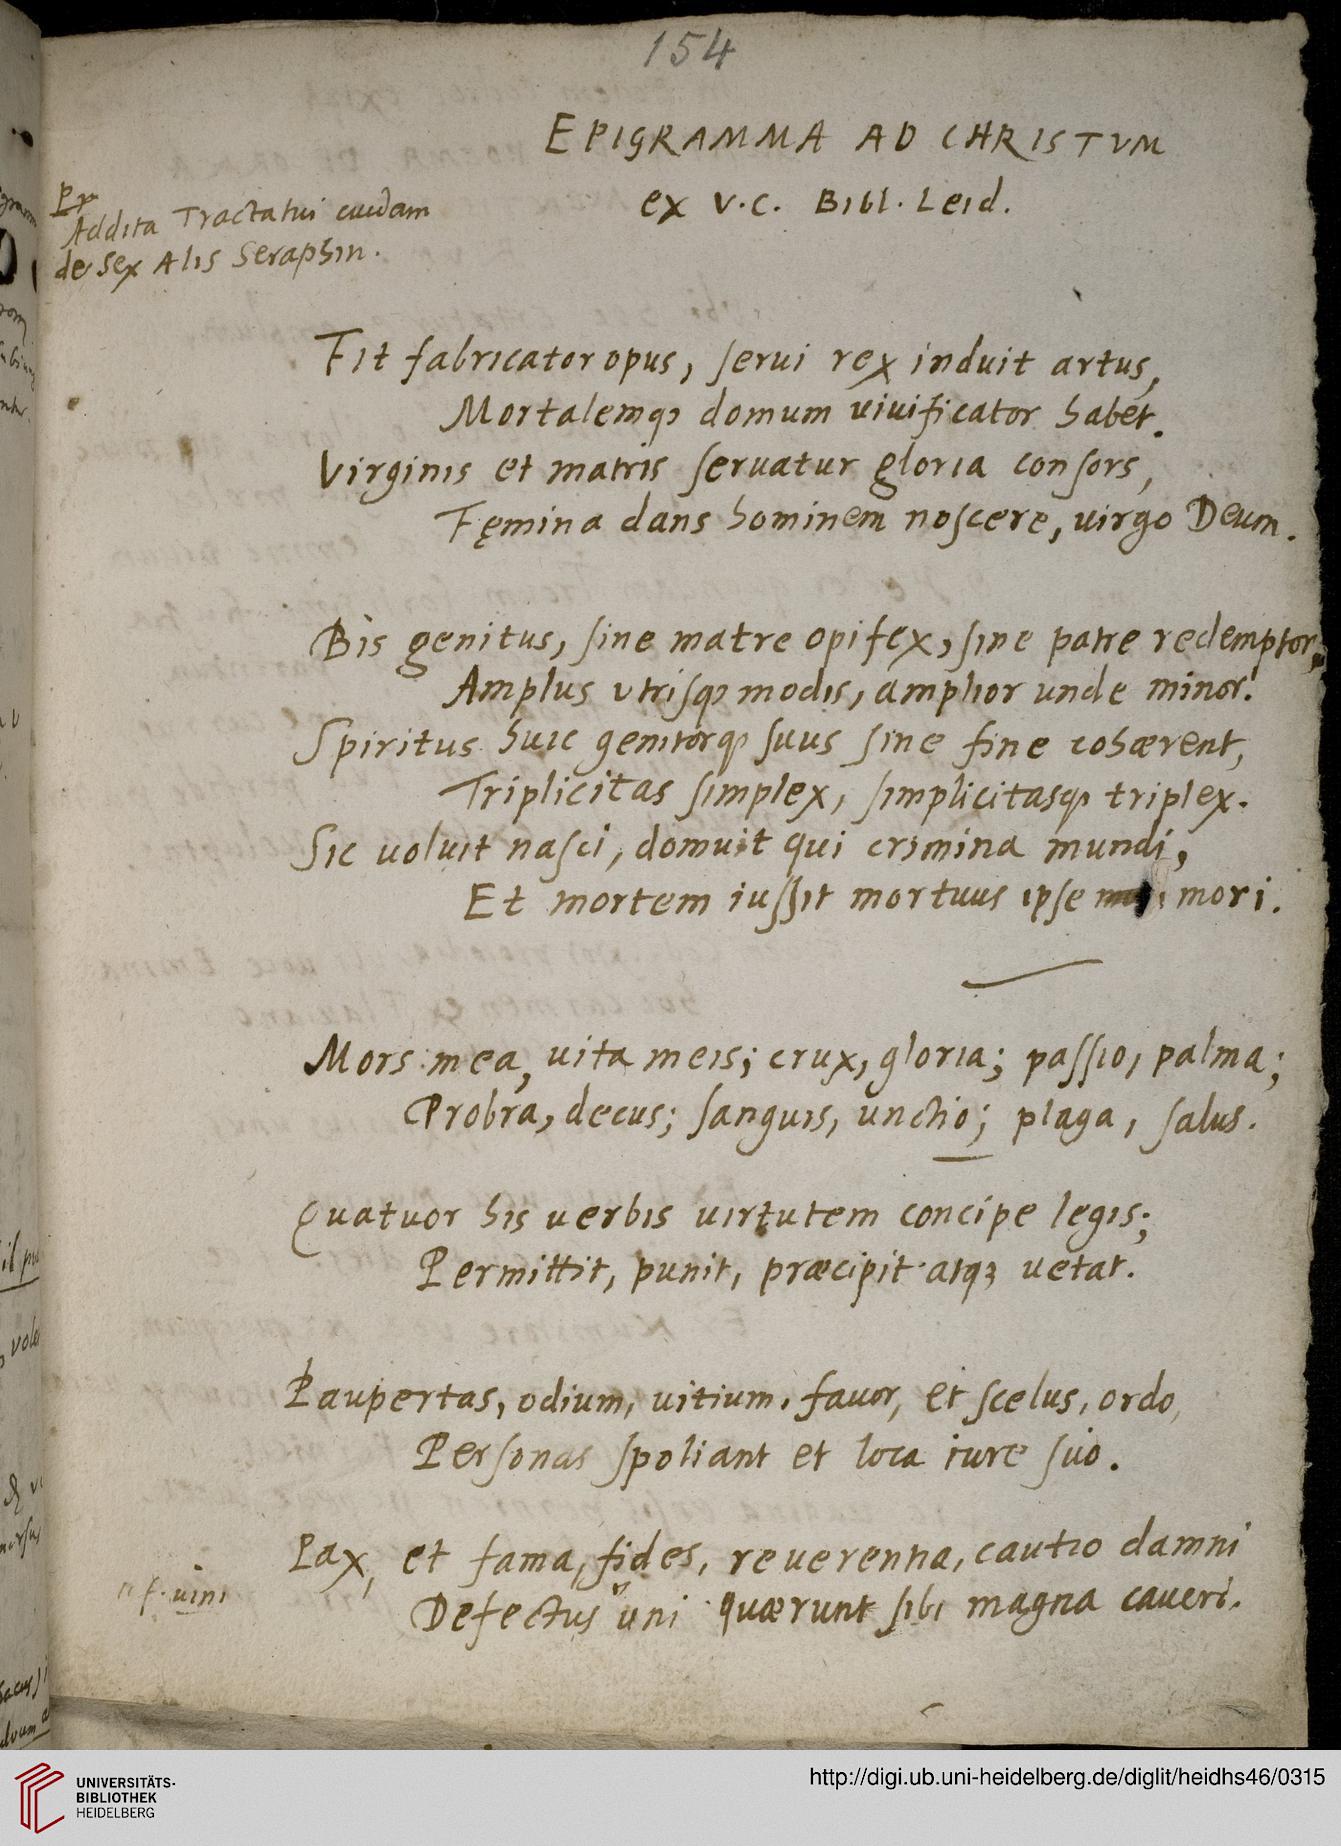 154
EPIGRAMMA AD CHRISTVM
ex v.c. Bibl. Leid.
Addita Tractatui cuidam
de sex Alis Seraphin.
Fit fabricator opus, serui rex induit artus,
Mortalemq; domum uiuificator habet.
Virginis et matris seruatur gloria consors,
Fęmina dans hominem noscere, uirgo Deum.
Bis genitus, sine matre opifex, sine patre redemptor,
Amplus vtrisq; modis, amplior unde minor.
Spiritus huic genitorq; suus sine fine cohærent,
Triplicitas simplex, simplicitasq; triplex.
Sic uoluit nasci, domuit qui crimina mundi,
Et mortem iussit mortuus ipse mori.
Mors mea, uita meis; crux, gloria; passio, palma;
Probra, decus; sanguis, unctio; plaga, salus.
Quatuor his uerbis uirtutem concipe legis;
Permittit, punit, præcipit atq; uetat.
Paupertas, odium, uitium, fauor, et scelus, ordo,
Personas spoliant et loca iure suo.
Pax, et fama, fides, reuerentia, cautio damni
Defectus uni quærunt sibi magna caueri.
f. uini
UNIVERSITÄTS-
BIBLIOTHEK
HEIDELBERG
http://digi.ub.uni-heidelberg.de/diglit/heidhs46/0315